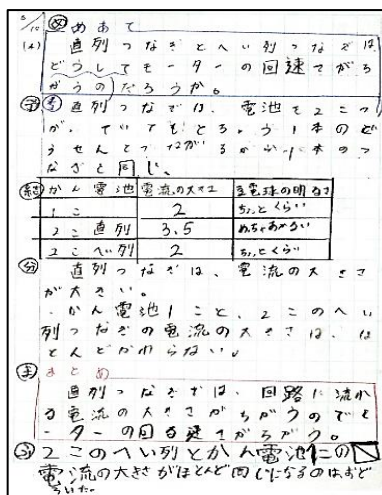 5/10 め めあて
(木) 直列つなぎとへい列つなぎでは
どうしてモーターの回速さがち
がうのだろうか。
予 考 直列つなぎでは、電池を2こつ
が
うせんとつながるから1本のつ
なぎと同じ。
結 かん電池 電流の大きさ 豆電球の明るさ
1こ 2 ちょっとくらい
2こ直列 3.5 めっちゃあかるい
2こへい列 2 ちょっとくらい
分 直列つなぎは、電流の大きさ
が大きい。
かん電池1こと、2このへい
列つなぎの電流の大きさは、ほ
とんどかわらない。
ま まとめ
直列つなぎでは、回路に流れ
る電流の大きさがちがうのでモ
ーターの回る速さがちがう。
ふ 2このへい列とかん電池1この
電流の大きさがほとんど同じになるのはおど
ろいた。